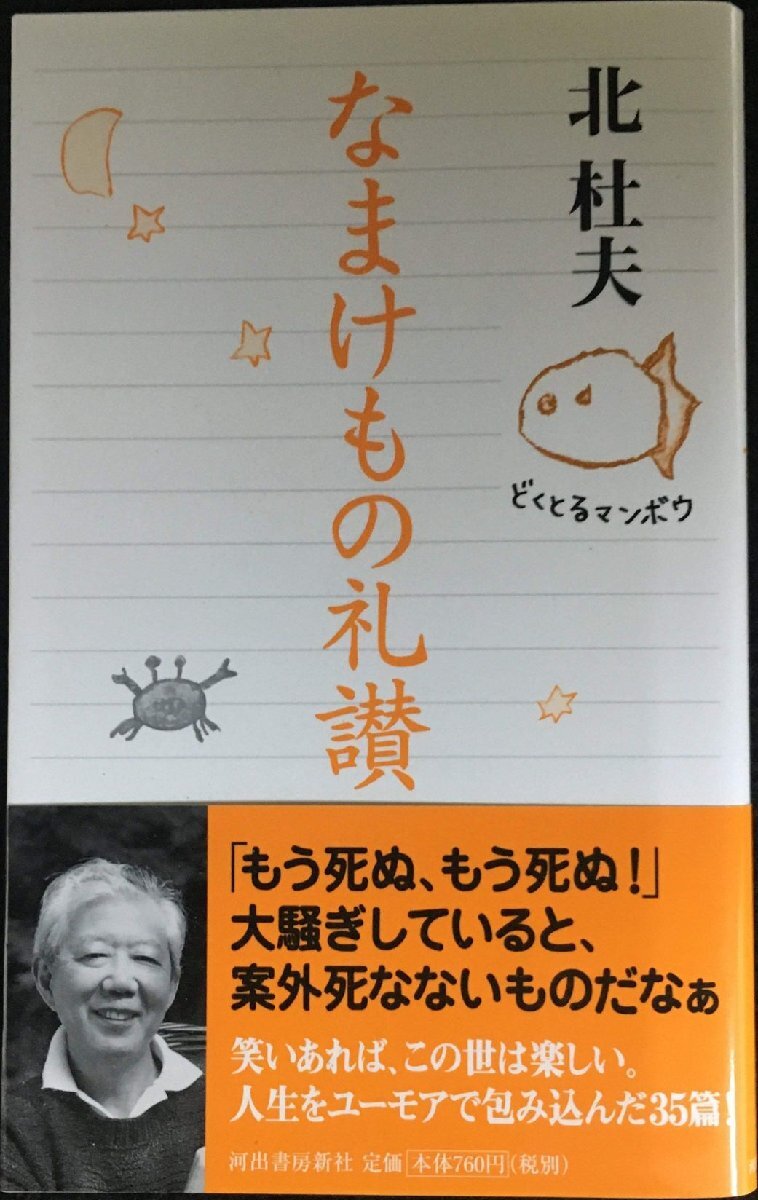 北 杜夫
どくとるマンボウ
なまけもの礼讃
「もう死ぬ、もう死ぬ!」
大騒ぎしていると、
案外死なないものだなぁ
笑いあれば、この世は楽しい。
人生をユーモアで包み込んだ35篇!
河出書房新社 定価 本体760円(税別)